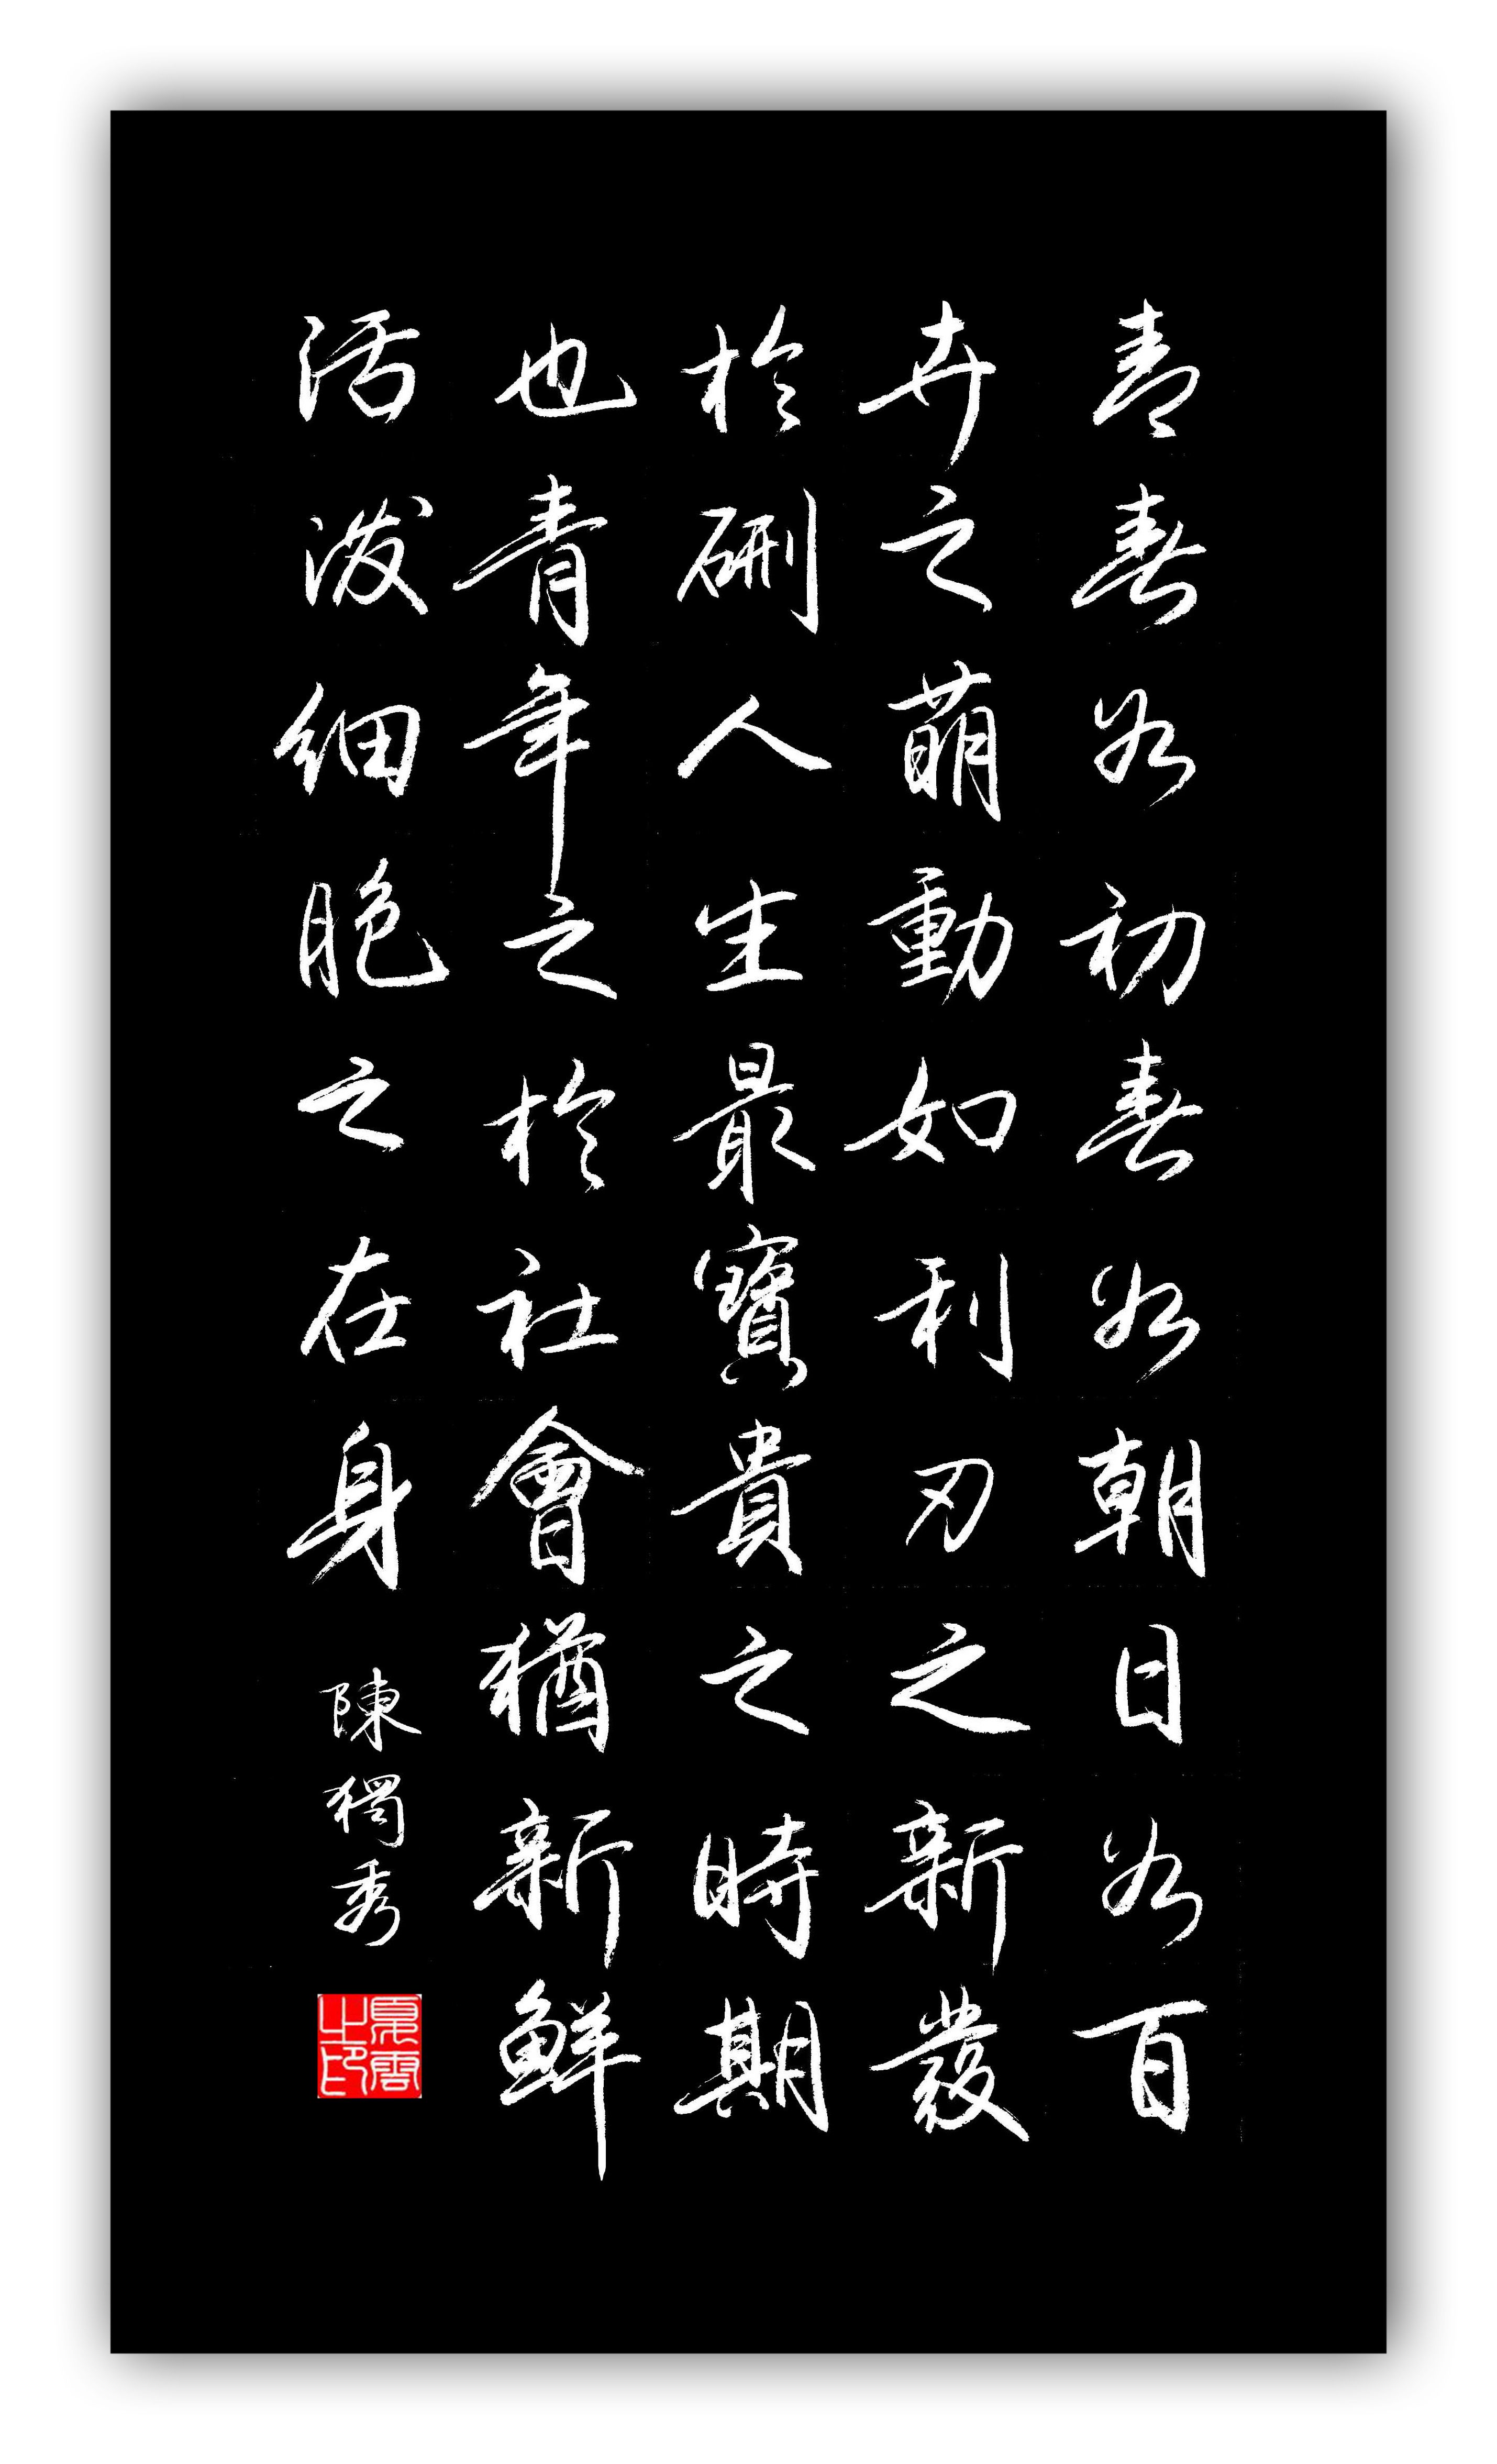 青春如初春如朝日如百
卉之萌動如利刃之新發
於硎人生最寶貴之時期
也青年之於社會猶新鮮
活潑細胞之在身
陳獨秀